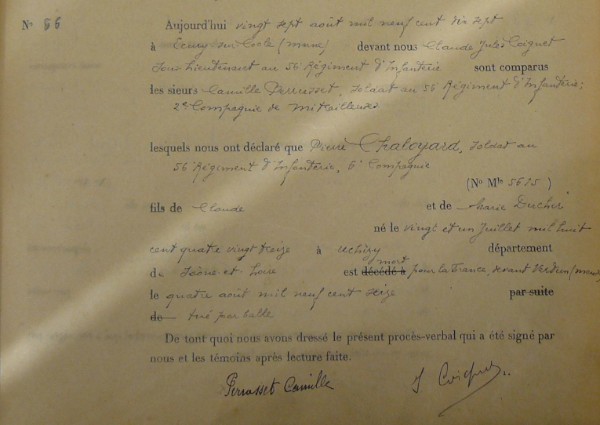 N° 56
Aujourd'hui vingt sept août mil neuf cent dix sept
à Ecury sur Coole (Marne) devant nous Claude Jules Coignet
Sous Lieutenant au 56 Régiment d'Infanterie sont comparus
les sieurs Camille Perrasset, soldat au 56 Régiment d'Infanterie;
2e Compagnie de Mitrailleuses
lesquels nous ont déclaré que Pierre Chaloyard, soldat au
56 Régiment d'Infanterie, 6 Compagnie
(No Mle 5615)
fils de Claude et de Marie
né le vingt et un Juillet mil huit
cent quatre vingt treize à Uchizy département
de Saône et Loire est décédé à mort pour la France, devant Verdun (Meuse)
le quatre août mil neuf cent seize par suite
de tué par balle
De tout quoi nous avons dressé le présent procès-verbal qui a été signé par
nous et les témoins après lecture faite.
Perrasset Camille J Coignet